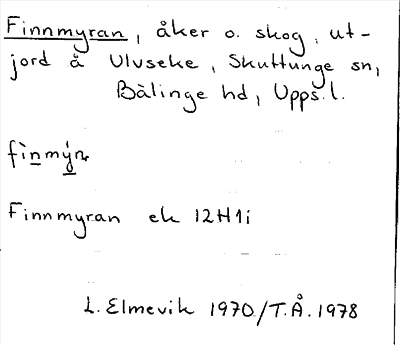 Finnmyran, åker o. skog, ut-
jord å Ulvseke, Skuttunge sn,
Bälinge hd, Upps. l.
Finnmyran ek 12H1i
L. Elmevik 1970/T.Å. 1978